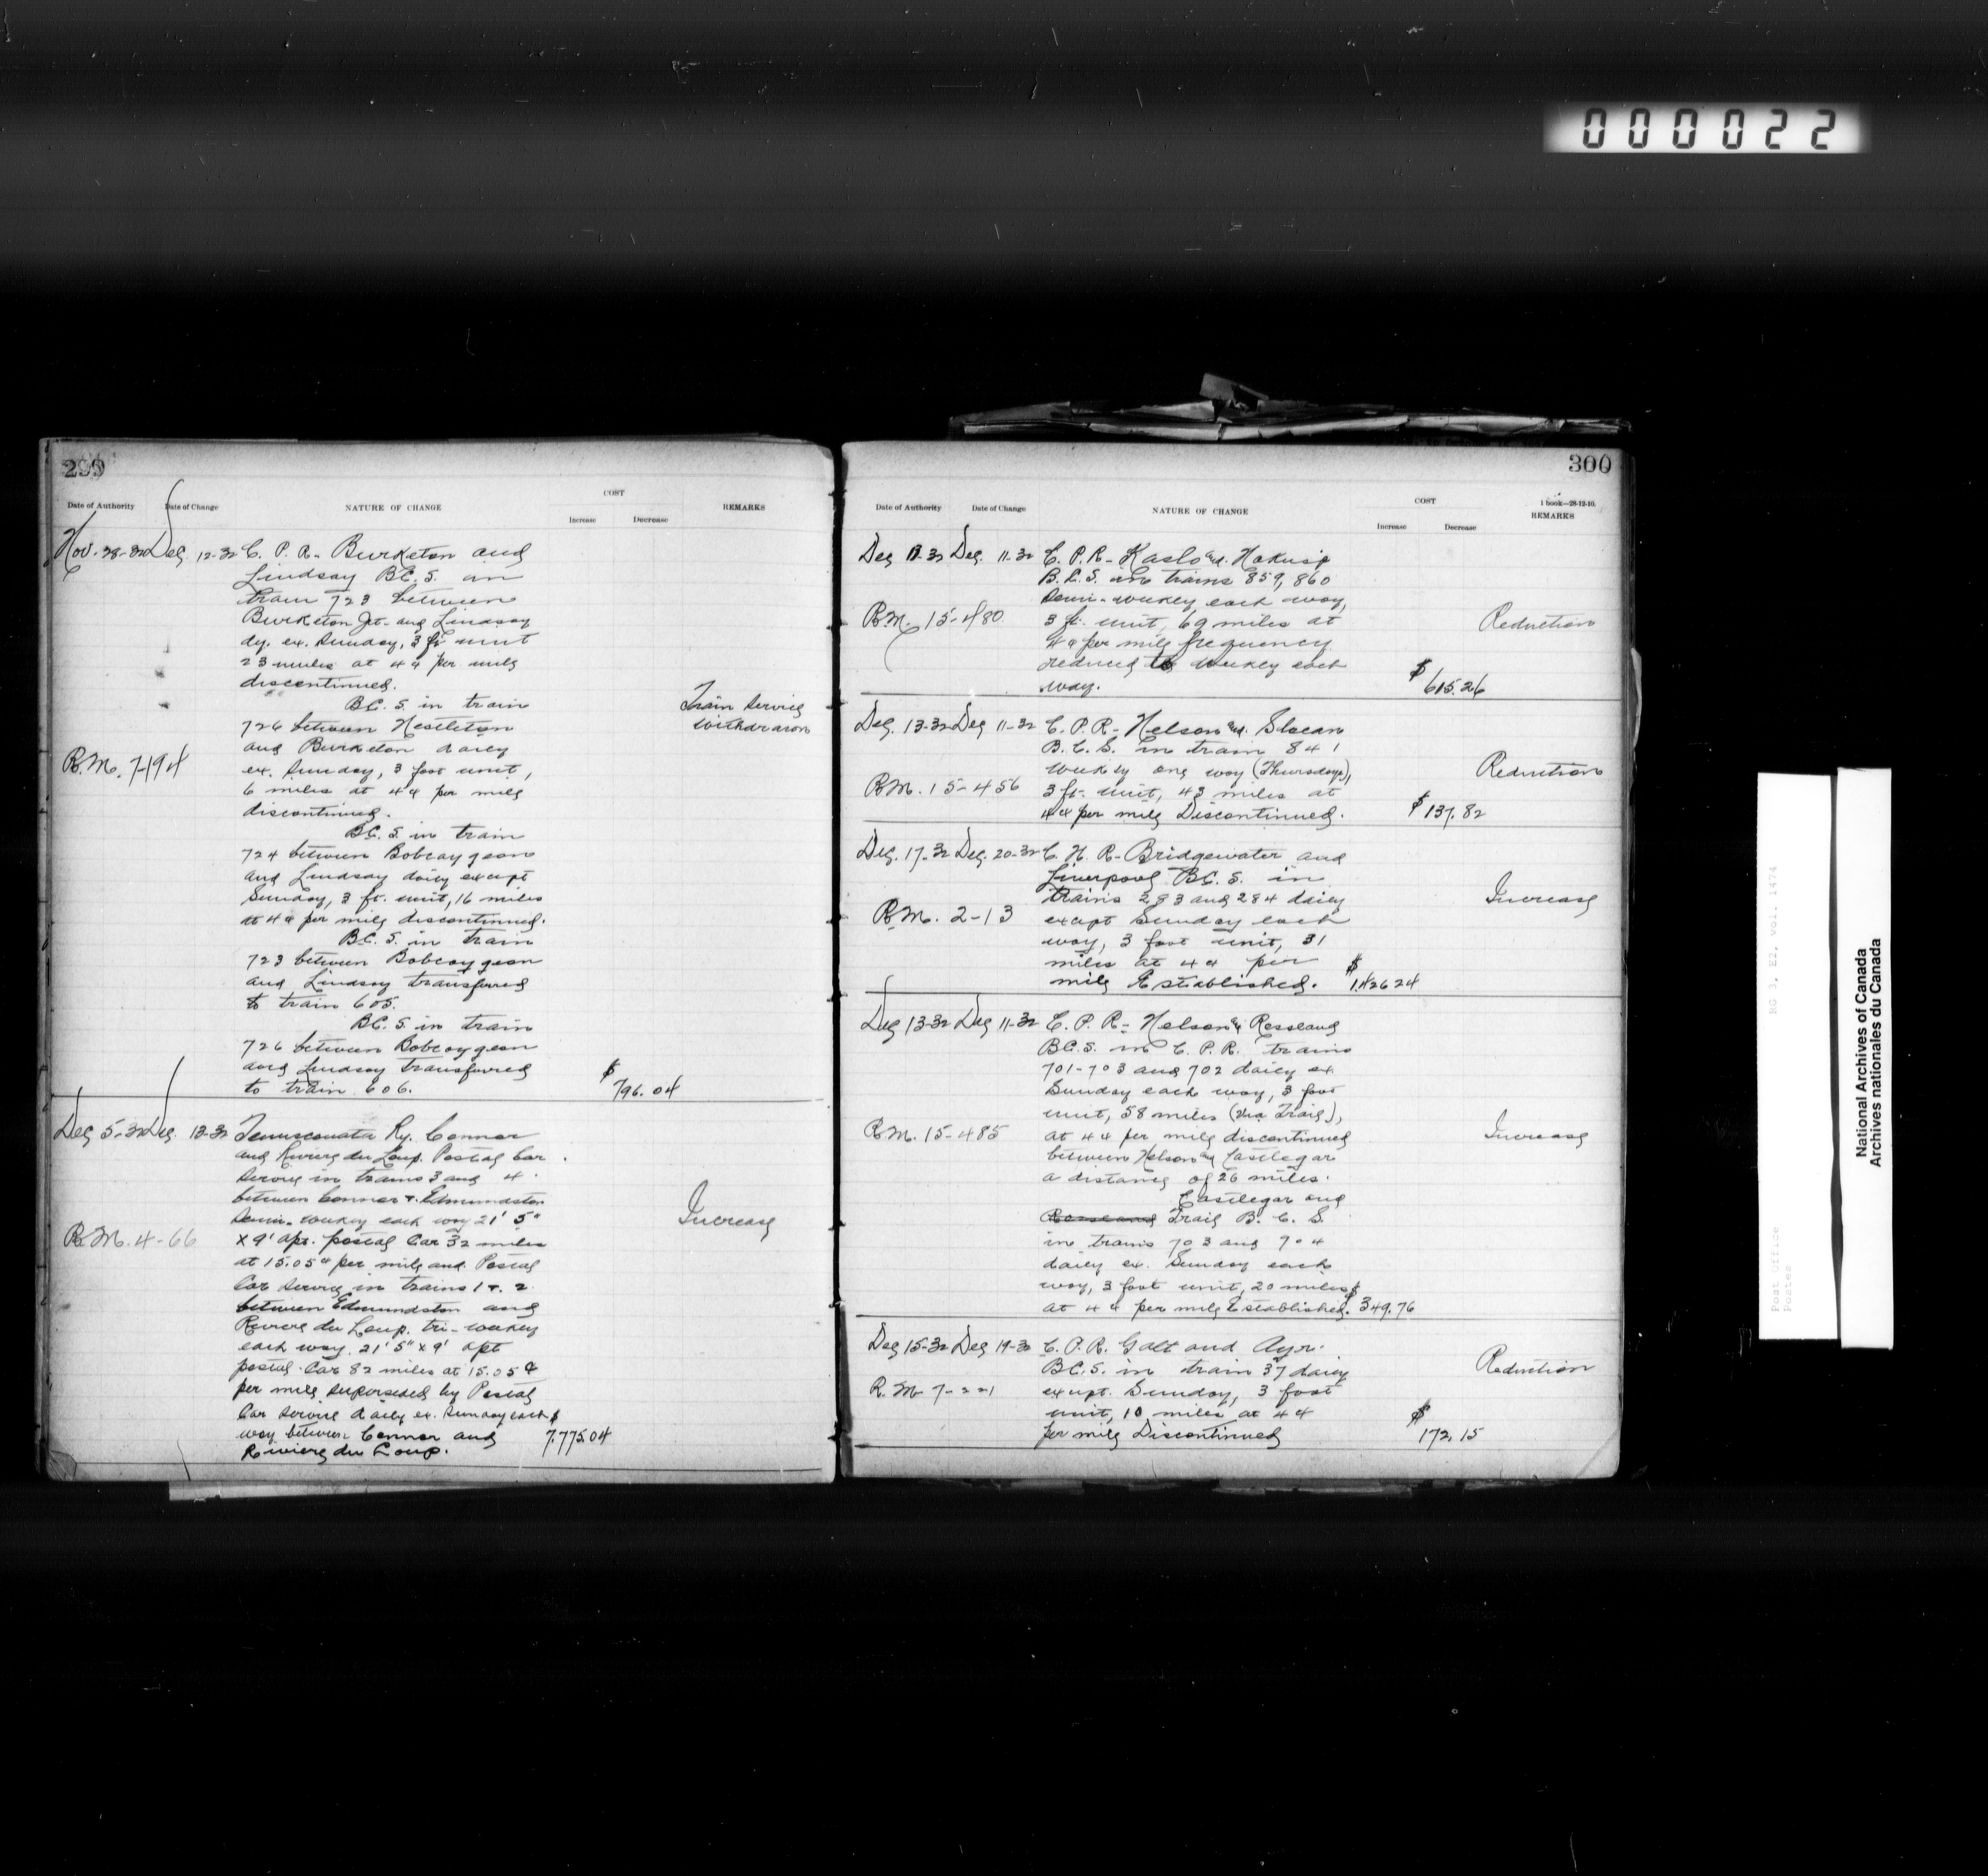 000022
299
COST
Date of Authority Date of Change NATURE OF CHANGE REMARKS
Increase Decrease
Nov. 28-32 Dec. 12-32 C. P. R. - Burketon and
Lindsay B.C. S. in
train 723 between
Burketon Jct. and Lindsay
dy. ex. Sunday, 3 ft unit
23 miles at 4 ¢ per mile
discontinued.
B.C. S. in train
Train Service
726 between Nestleton
withdrawn
and Burketon daily
R.M. 7-194
ex. Sunday, 3 foot unit,
6 miles at 4 ¢ per mile
discontinued.
B.C. S. in train
724 between Bobcaygeon
and Lindsay daily except
Sunday, 3 ft. unit, 16 miles
at 4 ¢ per mile discontinued.
B.C. S. in train
723 between Bobcaygeon
and Lindsay transferred
to train 605.
B.C. S. in train
726 between Bobcaygeon
and Lindsay transferred
to train 606. $ 796.04
Dec 5-32 Dec. 12-32 Temiscouata Ry. Connor
and Riviere du Loup. Postal Car
service in trains 3 and 4
between Connor & Edmundston
semi-weekly each way 21' 5"
Increase
R.M. 4-66
x 9' apt. postal Car 32 miles
at 15.05 ¢ per mile and Postal
Car service in trains 1 & 2
between Edmundston and
Riviere du Loup. tri-weekly
each way. 21' 5" x 9' apt
postal Car 82 miles at 15.05 ¢
per mile superseded by Postal
Car service daily ex. Sunday each
way between Connor and $ 7.775.04
Riviere du Loup.
300
COST
1 book—28-12-10.
Date of Authority Date of Change NATURE OF CHANGE REMARKS
Increase Decrease
Dec 13-32 Dec. 11-32 C. P. R - Kaslo and Nakusp
B. C. S. in trains 859, 860
semi-weekly each way,
R.M. 15-480 3 ft. unit, 69 miles at Reduction
4 ¢ per mile frequency
reduced to weekly each
way. $ 615.26
Dec. 13-32 Dec 11-32 C. P. R - Nelson and Slocan
B. C. S. in train 841
weekly one way (Thursdays), Reduction
R.M. 15-456 3 ft. unit, 43 miles at
4 ¢ per mile Discontinued. $ 137.82
Dec. 17-32 Dec. 20-32 C. N. R - Bridgewater and
Liverpool B.C. S. in
trains 283 and 284 daily Increase
R.M. 2-13 except Sunday each
way, 3 foot unit, 31
miles at 4 ¢ per
mile Established. $ 1,426 24
Dec 13-32 Dec 11-32 C. P. R - Nelson and Rossland
B.C.S. in C. P. R. trains
701-703 and 702 daily ex
Sunday each way, 3 foot
unit, 58 miles (via Trail),
R.M. 15-485 at 4 ¢ per mile discontinued Increase
between Nelson and Castlegar
a distance of 26 miles.
Castlegar and
Rossland Trail B. C. S.
in trains 703 and 704
daily ex. Sunday each
way, 3 foot unit, 20 miles
at 4 ¢ per mile Established. $ 349.76
Dec 15-32 Dec 19-32 C. P. R. Galt and Ayr.
B.C.S. in train 37 daily Reduction
R.M 7-221 except. Sunday, 3 foot
unit, 10 miles at 4 ¢
per mile Discontinued $ 172.15
RG 3, E2, vol. 1474
Post Office
Postes
National Archives of Canada
Archives nationales du Canada